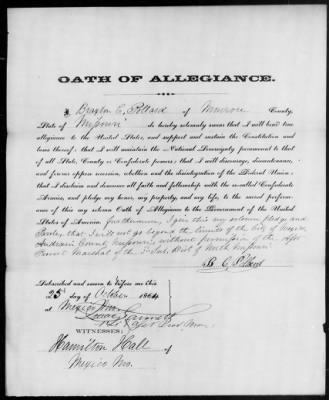 OATH OF ALLEGIANCE.
I Braxton C. Pollard of Monroe County,
State of Missouri do hereby solemnly swear that I will bear true
allegiance to the United States, and support and sustain the Constitution and
laws thereof; that I will maintain the National Sovereignty paramount to that
of all State, County or Confederate powers; that I will discourage, discountenance,
and forever oppose secession, rebellion and the disintegration of the Federal Union;
that I disclaim and denounce all faith and fellowship with the so-called Confederate
Armies, and pledge my honor, my property, and my life, to the sacred perform-
ance of this my solemn Oath of Allegiance to the Government of the United
States of America. Furthermore, I give this my solemn pledge and
Parole, that I will not go beyond the limits of the City of Mexico,
Audrain County Missouri, without permission of the
Provost Marshal of the Dist of North Missouri
B. C. Pollard
Subscribed and sworn to before me this
25 day of October 1864
at Mexico Mo.
WITNESSES:
Hamilton Hall of
Mexico Mo.